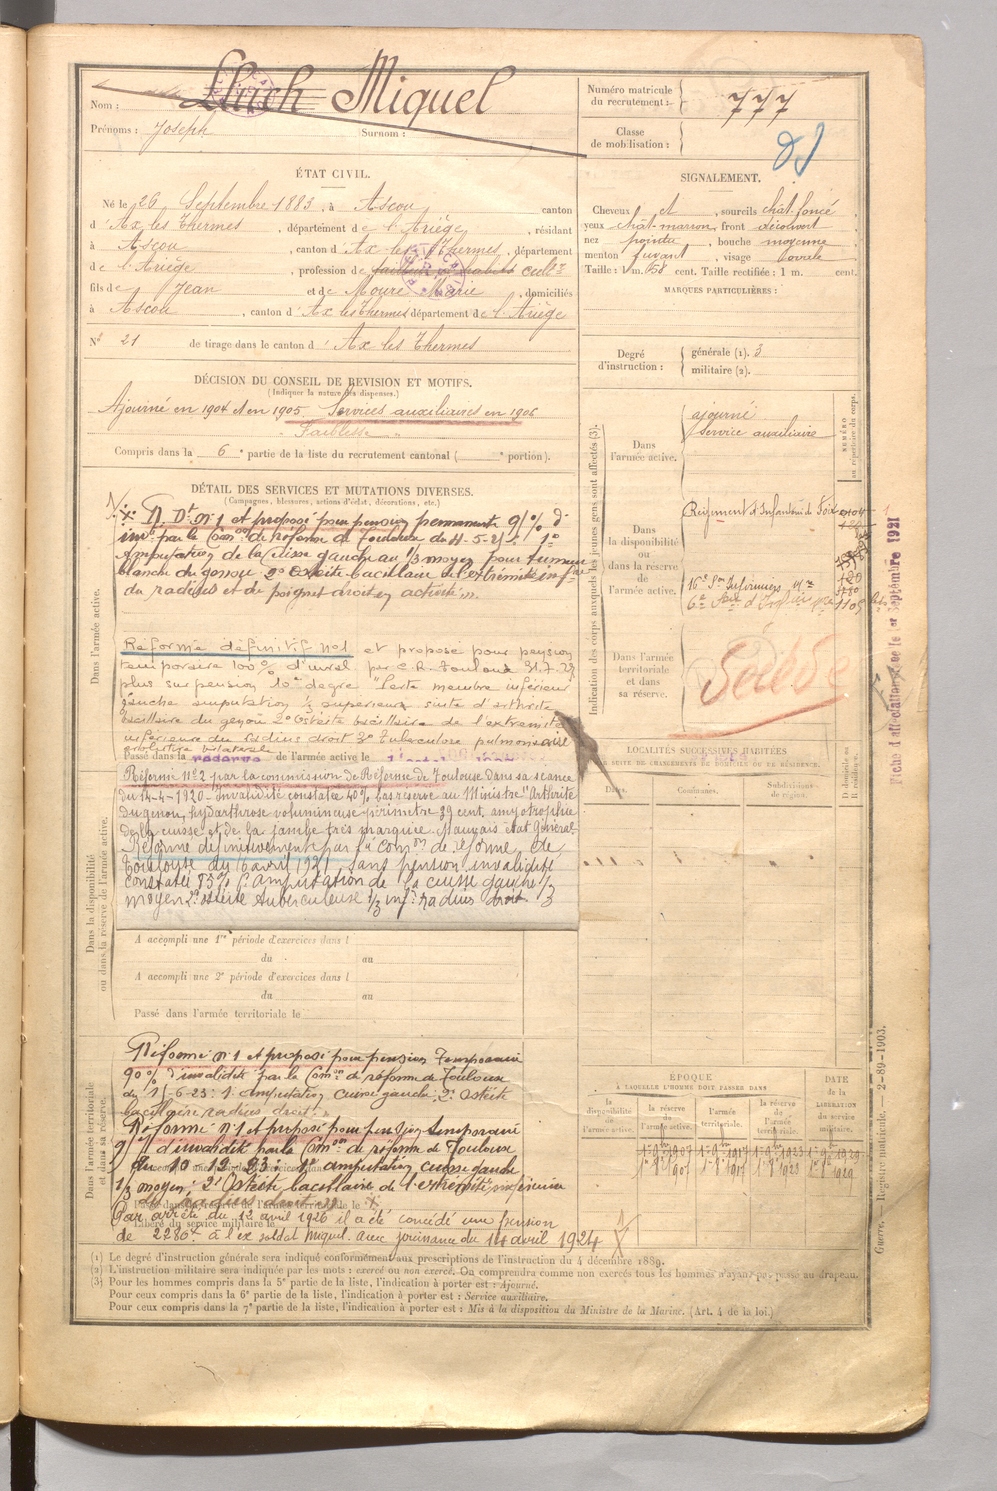 Nom : Miquel
Prénoms : Joseph Surnom :
Numéro matricule du recrutement : 777
Classe de mobilisation :
ÉTAT CIVIL.
Né le 26 Septembre 1883, à Ascou canton
d'Ax les Thermes, département de l'Ariège, résidant
à Ascou, canton d'Ax les Thermes, département
de l'Ariège, profession de cultr
fils de Jean et de Moure Marie, domiciliés
à Ascou, canton d'Ax les Thermes département de l'Ariège
N° 21 de tirage dans le canton d'Ax les Thermes
SIGNALEMENT.
Cheveux et, sourcils chât. foncé
yeux chât-marron, front découvert
nez pointu, bouche moyenne
menton fuyant, visage ovale
Taille : 1 m. 58 cent. Taille rectifiée : 1 m. cent.
MARQUES PARTICULIÈRES :
Degré d'instruction : générale (1). 3
militaire (2).
DÉCISION DU CONSEIL DE REVISION ET MOTIFS.
(Indiquer la nature des dispenses.)
Ajourné en 1904 et en 1905. Services auxiliaires en 1906
Faiblesse
Compris dans la 6e partie de la liste du recrutement cantonal ( e portion).
DÉTAIL DES SERVICES ET MUTATIONS DIVERSES.
(Campagnes, blessures, actions d'éclat, décorations, etc.)
Dans l'armée active.
R. Dt. n°1 et proposé pour pension permanente
inv. par la Comon de réforme de Toulouse du 4-5-25 : 1°
Amputation de la Cuisse gauche au 1/3 moyen pour tumeur
blanche du genou 2° Ostéite bacillaire de l'extrémité infre
du radius et du poignet droit en activité".
Réforme définitif n°1 et proposé pour pension
temporaire 100% d'inval par C.R. Toulouse 31.7.29
plus surpension 10e degré "Perte membre inférieur
gauche amputation 1/3 supérieur suite d'arthrite
bacillaire du genou 2° Ostéite bacillaire de l'extrémité
inférieure du radius droit 3° tuberculose pulmonaire
bilatérale
Passé dans la réserve de l'armée active le
Dans la disponibilité ou dans la réserve de l'armée active.
Réformé N°2 par la commission de Réforme de Toulouse dans sa séance
du 14-4-1920 - Invalidité constatée 40% Cas réservé au Ministre "Arthrite
du genou, hydarthrose volumineuse périmètre 39 cent. amyotrophie
de la cuisse et de la jambe très marquée. Mauvais état Général-
Réformé définitivement par la Comon de réforme de
Toulouse du 16 avril 1921 sans pension invalidité
constatée 85% 1° amputation de la cuisse gauche 1/3
moyen 2° ostéite tuberculeuse 1/3 infr radius droit
A accompli une 1re période d'exercices dans l
du au
A accompli une 2e période d'exercices dans l
du au
Passé dans l'armée territoriale le
Dans l'armée territoriale et dans sa réserve.
Réformé n°1 et proposé pour pension Temporaire
90% d'invalidité par la Comon de réforme de Toulouse
du 15-6-23 : 1° Amputation cuisse gauche. 2° Ostéite
bacillaire radius droit.
Réformé n°1 et proposé pour pension temporaire
d'invalidité par la Comon de réforme de Toulouse
du 10 12 23 : 1° amputation cuisse gauche
1/3 moyen : 2° Ostéite bacillaire de l'extrémité inférieure
du radius droit
Passé dans la réserve de l'armée territoriale le
Par arrêté du 12 avril 1926 il a été concédé une pension
Libéré du service militaire le
de 2280f à l'ex soldat Miquel. avec jouissance du 14 avril 1924
Indication des corps auxquels les jeunes gens sont affectés (3).
NUMÉRO au répertoire du corps.
Dans l'armée active.
ajourné
Service auxiliaire
Dans la disponibilité ou dans la réserve de l'armée active.
Régiment d'Infanterie de Foix
16e Son Infirmiers
Dans l'armée territoriale et dans sa réserve.
Fiche d'affectation du 1er Septembre 1921
LOCALITÉS SUCCESSIVES HABITÉES
PAR SUITE DE CHANGEMENTS DE DOMICILE OU DE RÉSIDENCE.
Dates. Communes. Subdivisions de région. D domicile ou R résidence.
ÉPOQUE
À LAQUELLE L'HOMME DOIT PASSER DANS
DATE de la LIBÉRATION du service militaire.
la disponibilité de l'armée active. la réserve de l'armée active. l'armée territoriale. la réserve de l'armée territoriale.
Guerre. — Registre matricule. — 2-89-1903.
(1) Le degré d'instruction générale sera indiqué conformément aux prescriptions de l'instruction du 4 décembre 1889.
(2) L'instruction militaire sera indiquée par les mots : exercé ou non exercé. On comprendra comme non exercés tous les hommes n'ayant pas passé au drapeau.
(3) Pour les hommes compris dans la 5e partie de la liste, l'indication à porter est : Ajourné.
Pour ceux compris dans la 6e partie de la liste, l'indication à porter est : Service auxiliaire.
Pour ceux compris dans la 7e partie de la liste, l'indication à porter est : Mis à la disposition du Ministre de la Marine. (Art. 4 de la loi.)